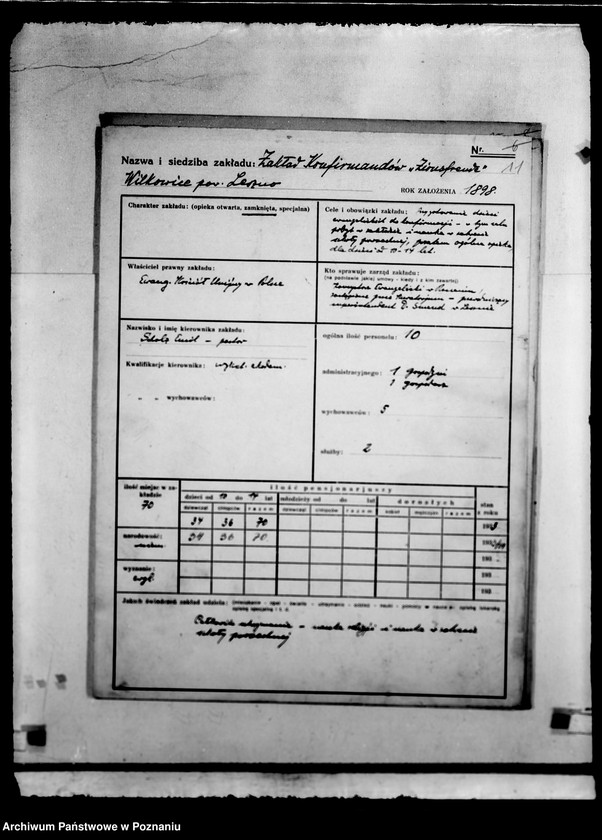 Nr. 6
11
Nazwa i siedziba zakładu: Zakład Konfirmandów „Zionsfreude"
Wilkowice pow. Leszno
ROK ZAŁOŻENIA 1898.
Charakter zakładu: (opieka otwarta, zamknięta, specjalna)
Cele i obowiązki zakładu: Przygotowanie dzieci
ewangelickich do konfirmacji – w tym celu
pobyt w zakładzie i nauka w zakresie
szkoły powszechnej, ogólna opieka
dla dzieci od 10–14 lat.
Właściciel prawny zakładu:
Ewang. Kościół Unijny w Polsce
Kto sprawuje zarząd zakładu:
(na podstawie jakiej umowy – kiedy i z kim zawartej)
Ewangelicki w Poznaniu,
przez
superintendent D. w Lesznie
Nazwisko i imię kierownika zakładu:
Emil – pastor
Kwalifikacje kierownika:
„ „ wychowawców:
ogólna ilość personelu: 10
administracyjnego: 1 gospodyni
1 gospodarz
wychowawców: 5
służby: 2
ilość miejsc w zakładzie
70
ilość pensjonarjuszy
dzieci od 10 do 14 lat
młodzieży od do lat
dorosłych
stan z roku
dziewcząt chłopców razem
dziewcząt chłopców razem
kobiet mężczyzn razem
34 36 70 193
narodowość:
34 36 70 193
193
wyznanie:
ewgl.
193
193
Jakich świadczeń zakład udziela:
Całkowite utrzymanie – nauka religji i nauka w zakresie
szkoły powszechnej
Archiwum Państwowe w Poznaniu